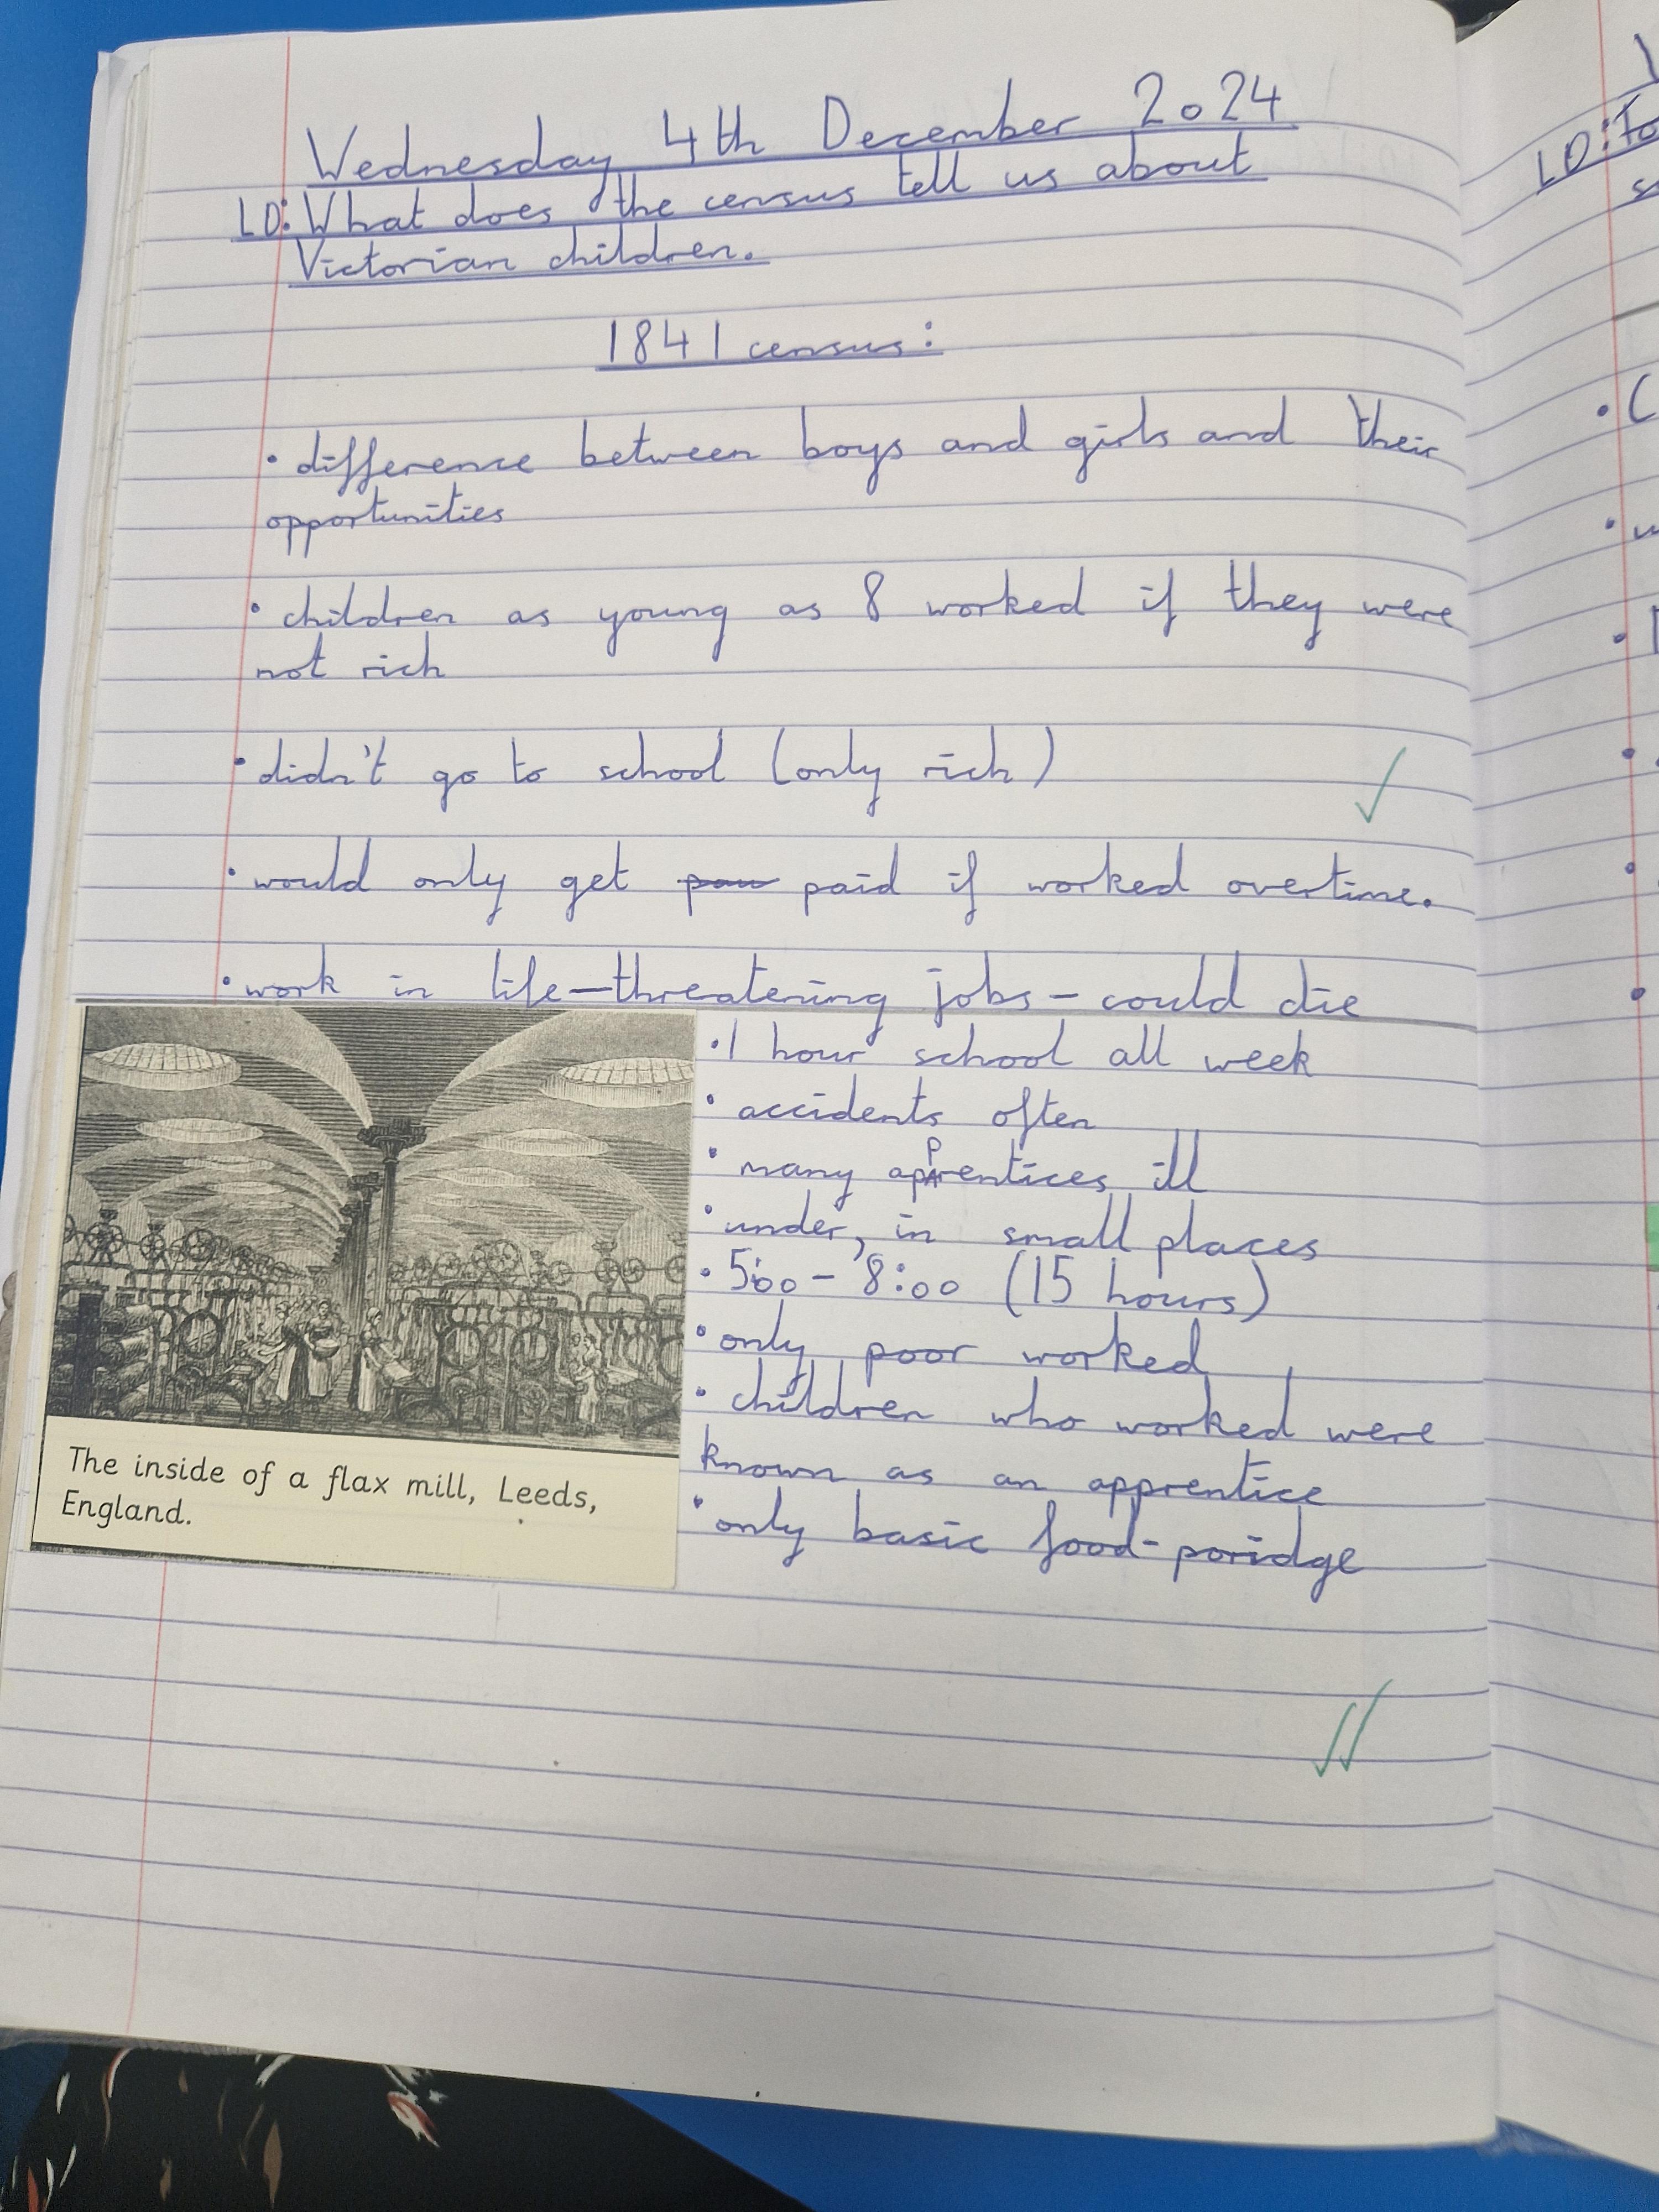 Wednesday 4th December 2024
LO: What does the census tell us about
Victorian children.
1841 census:
• difference between boys and girls and their
opportunities
• children as young as 8 worked if they were
not rich
• didn't go to school (only rich)
• would only get paid if worked overtime.
• work in life-threatening jobs - could die
• 1 hour school all week
• accidents often
• many apprentices ill
• under, in small places
• 5:00 - 8:00 (15 hours)
• only poor worked
• children who worked were
known as an apprentice
• only basic food - poridge
The inside of a flax mill, Leeds,
England.
LO: To